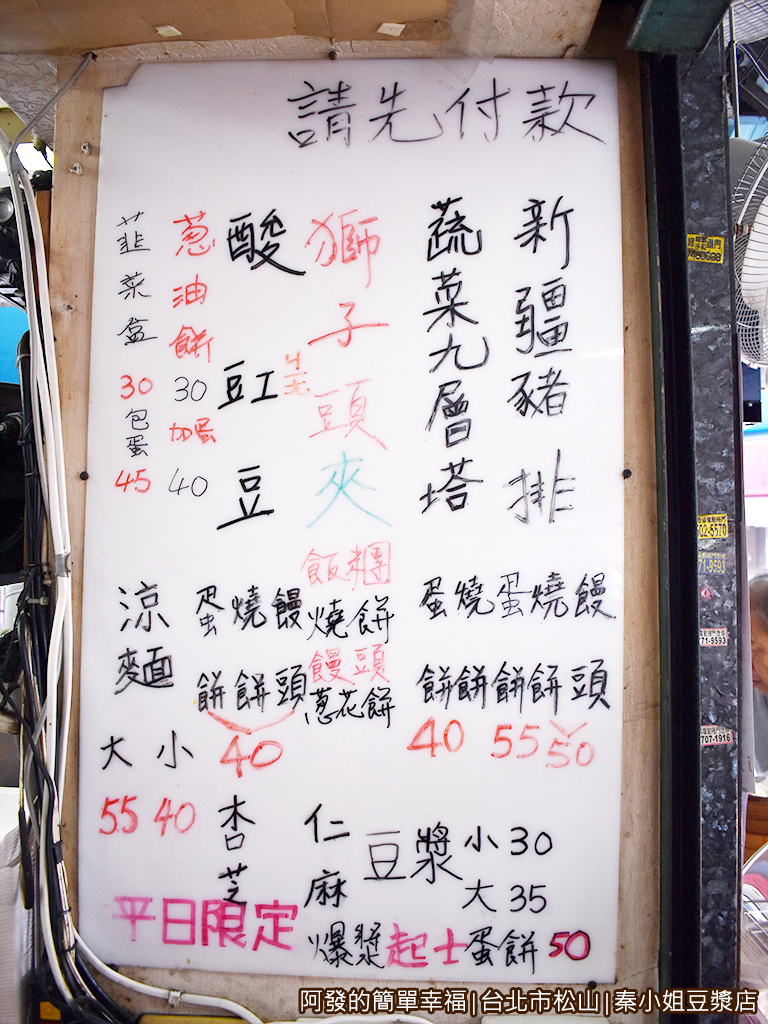 請先付款
新疆豬排
蛋燒饅
餅餅頭
55 50
蔬菜九層塔
蛋燒
餅餅
40
獅子頭夾
飯糰
燒餅
饅頭
蔥花餅
酸豇豆
蛋燒饅
餅餅頭
40
蔥油餅
30
加蛋
40
韭菜盒
30
包蛋
45
涼麵
大 小
55 40
杏仁
芝麻
豆漿 小 30
大 35
平日限定 爆漿起士蛋餅 50
阿發的簡單幸福|台北市松山|秦小姐豆漿店